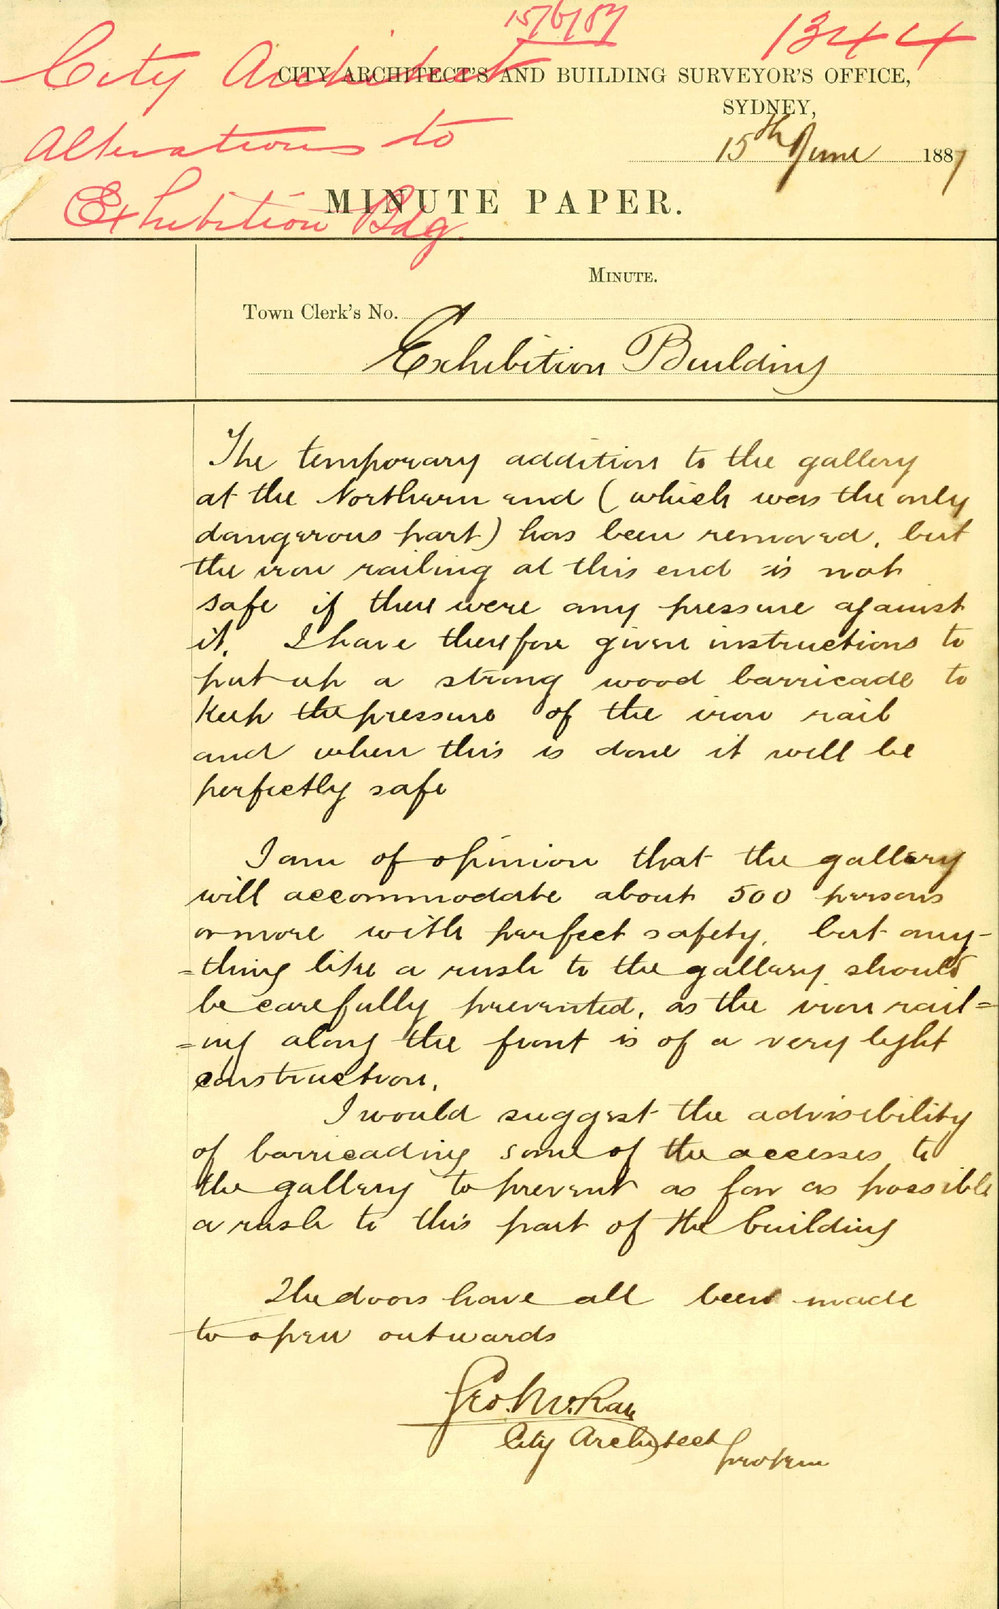 15/6/87
1344
City Architect
CITY ARCHITECT'S AND BUILDING SURVEYOR'S OFFICE,
SYDNEY,
Alterations to
15th June 1887
Exhibition Bdg.
MINUTE PAPER.
MINUTE.
Town Clerk's No.
Exhibition Building
The temporary addition to the gallery
at the Northern end (which was the only
dangerous part) has been removed, but
the iron railing at this end is not
safe if there were any pressure against
it. I have therefore given instructions to
put up a strong wood barricade to
keep the pressure of the iron rail
and when this is done it will be
perfectly safe
I am of opinion that the gallery
will accommodate about 500 persons
or more with perfect safety, but any-
=thing like a rush to the gallery should
be carefully prevented, as the iron rail=
=ing along the front is of a very light
construction.
I would suggest the advisibility
of barricading some of the accesses to
the gallery to prevent as far as possible
a rush to this part of the building
The doors have all been made
to open outwards
Geo. McRae
City Architect
protem